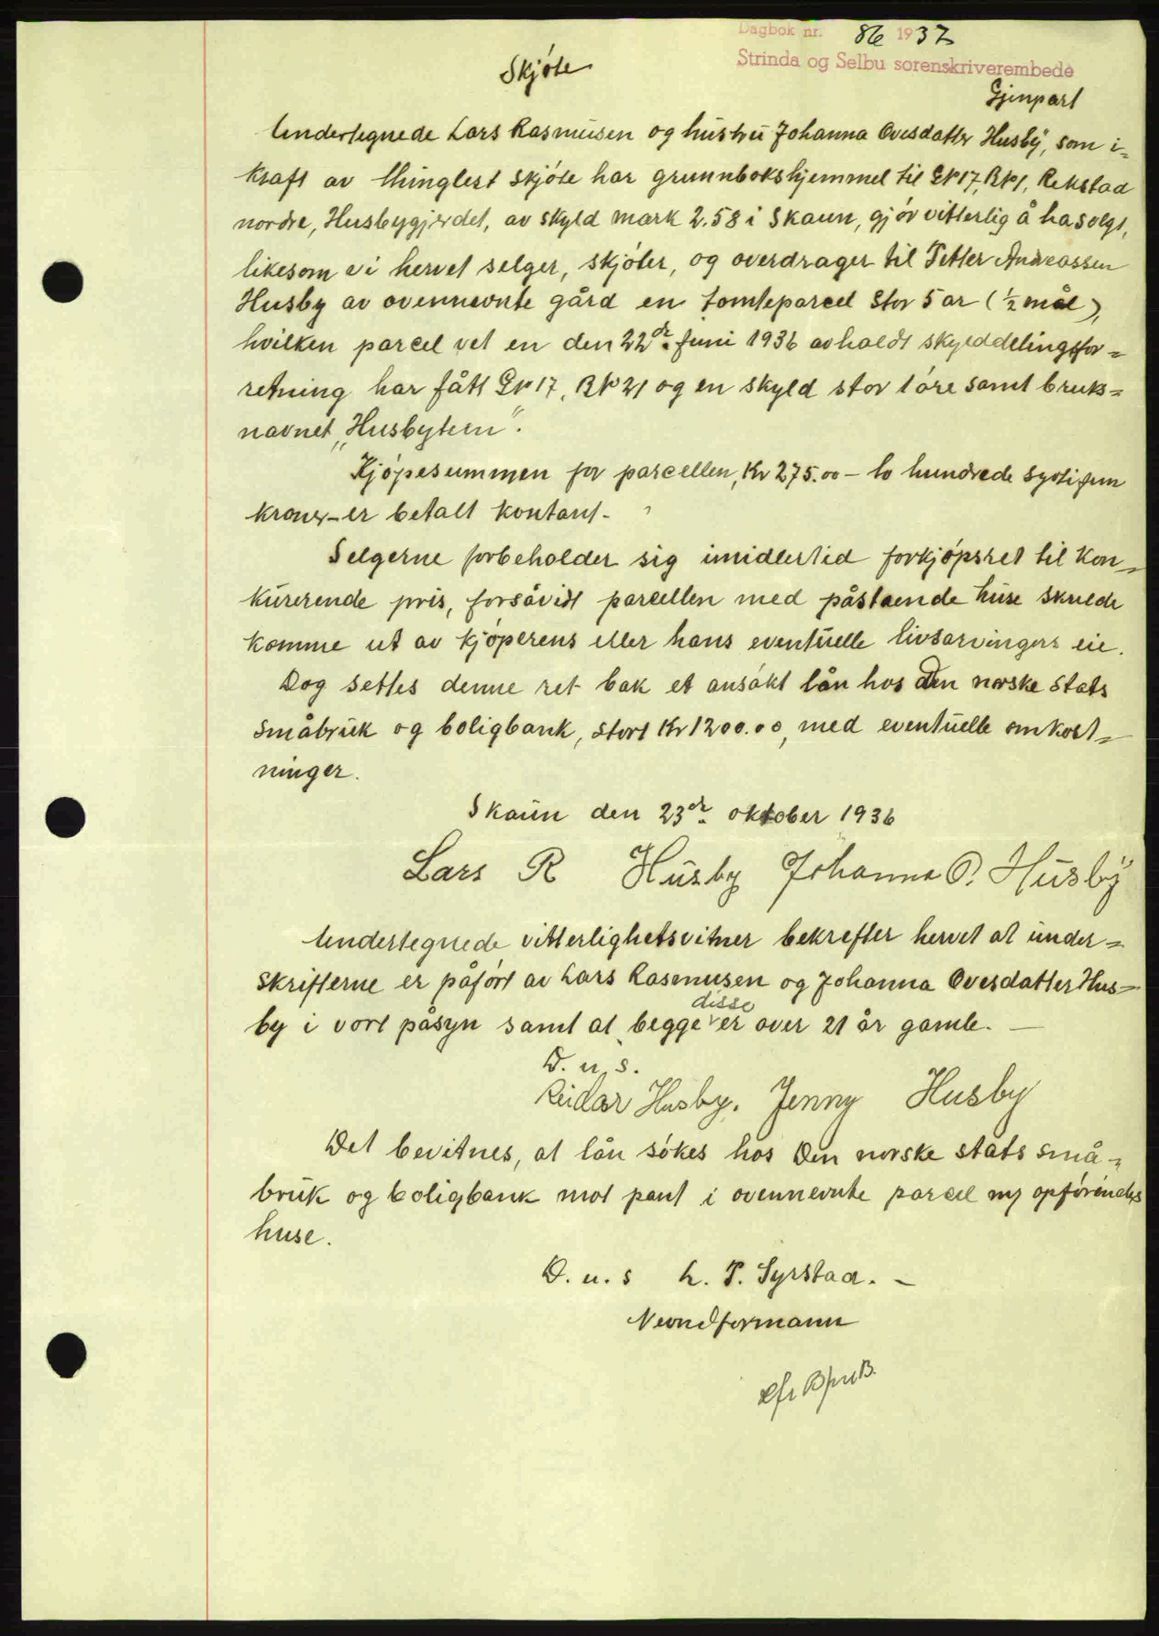 Dagbok nr. 86 1937
Strinda og Selbu sorenskriverembede
Skjöte
Gjenpart
Undertegnede Lars Rasmusen og hustru Johanna Ovesdatter Husby, som i-
kraft av thinglest skjöte har grunnbokshjemmel til Gr 17, Br 1, Rekstad
nordre, Husbygjerdet, av skyld mark 2.58 i Skaun, gjör vitterlig å ha solgt,
likesom vi hervet selger, skjöter, og overdrager til Petter Andreassen
Husby av ovennevnte gård en tomteparcel stor 5 ar (½ mål),
hvilken parcel vet en den 22de juni 1936 avholdt skylddelingsfor=
retning har fått Gr 17, Br 21 og en skyld stor 1 öre samt bruks=
navnet „Husbytun".
Kjöpesummen for parcellen, Kr 275.00 - to hundrede syttifem
kroner - er betalt kontant.
Selgerne forbeholder sig imidlertid forkjöpsret til kon=
kurerende pris, forsåvidt parcellen med påstaende huse skulde
komme ut av kjöperens eller hans eventuelle livsarvingers eie.
Dog settes denne ret bak et ansökt lån hos Den norske stats
småbruk og boligbank, stort Kr 1200.00, med eventuelle omkost=
ninger.
Skaun den 23de oktober 1936
Lars R Husby Johanna O. Husby
Undertegnede vitterlighetsvitner bekrefter hervet at under=
skrifterne er påfört av Lars Rasmusen og Johanna Ovesdatter Hus=
by i vort påsyn samt at begge disse er over 21 år gamle. —
D. u. s.
Reidar Husby. Jenny Husby
Det bevitnes, at lån sökes hos Den norske stats små=
bruk og boligbank mot pant i ovennevnte parcel m/ opförendes
huse.
D. u. s L. P. Syrstad. -
Nevndformann